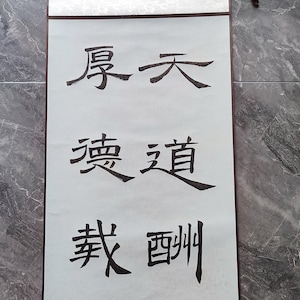 天道酬
厚德載